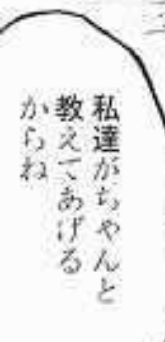 私達がちゃんと
教えてあげる
からね